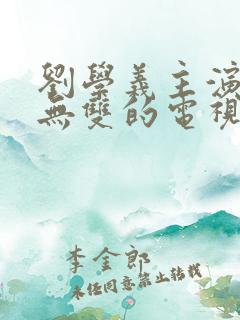 劉學義主演
無雙的電視
李金郎
未經同意禁止轉載